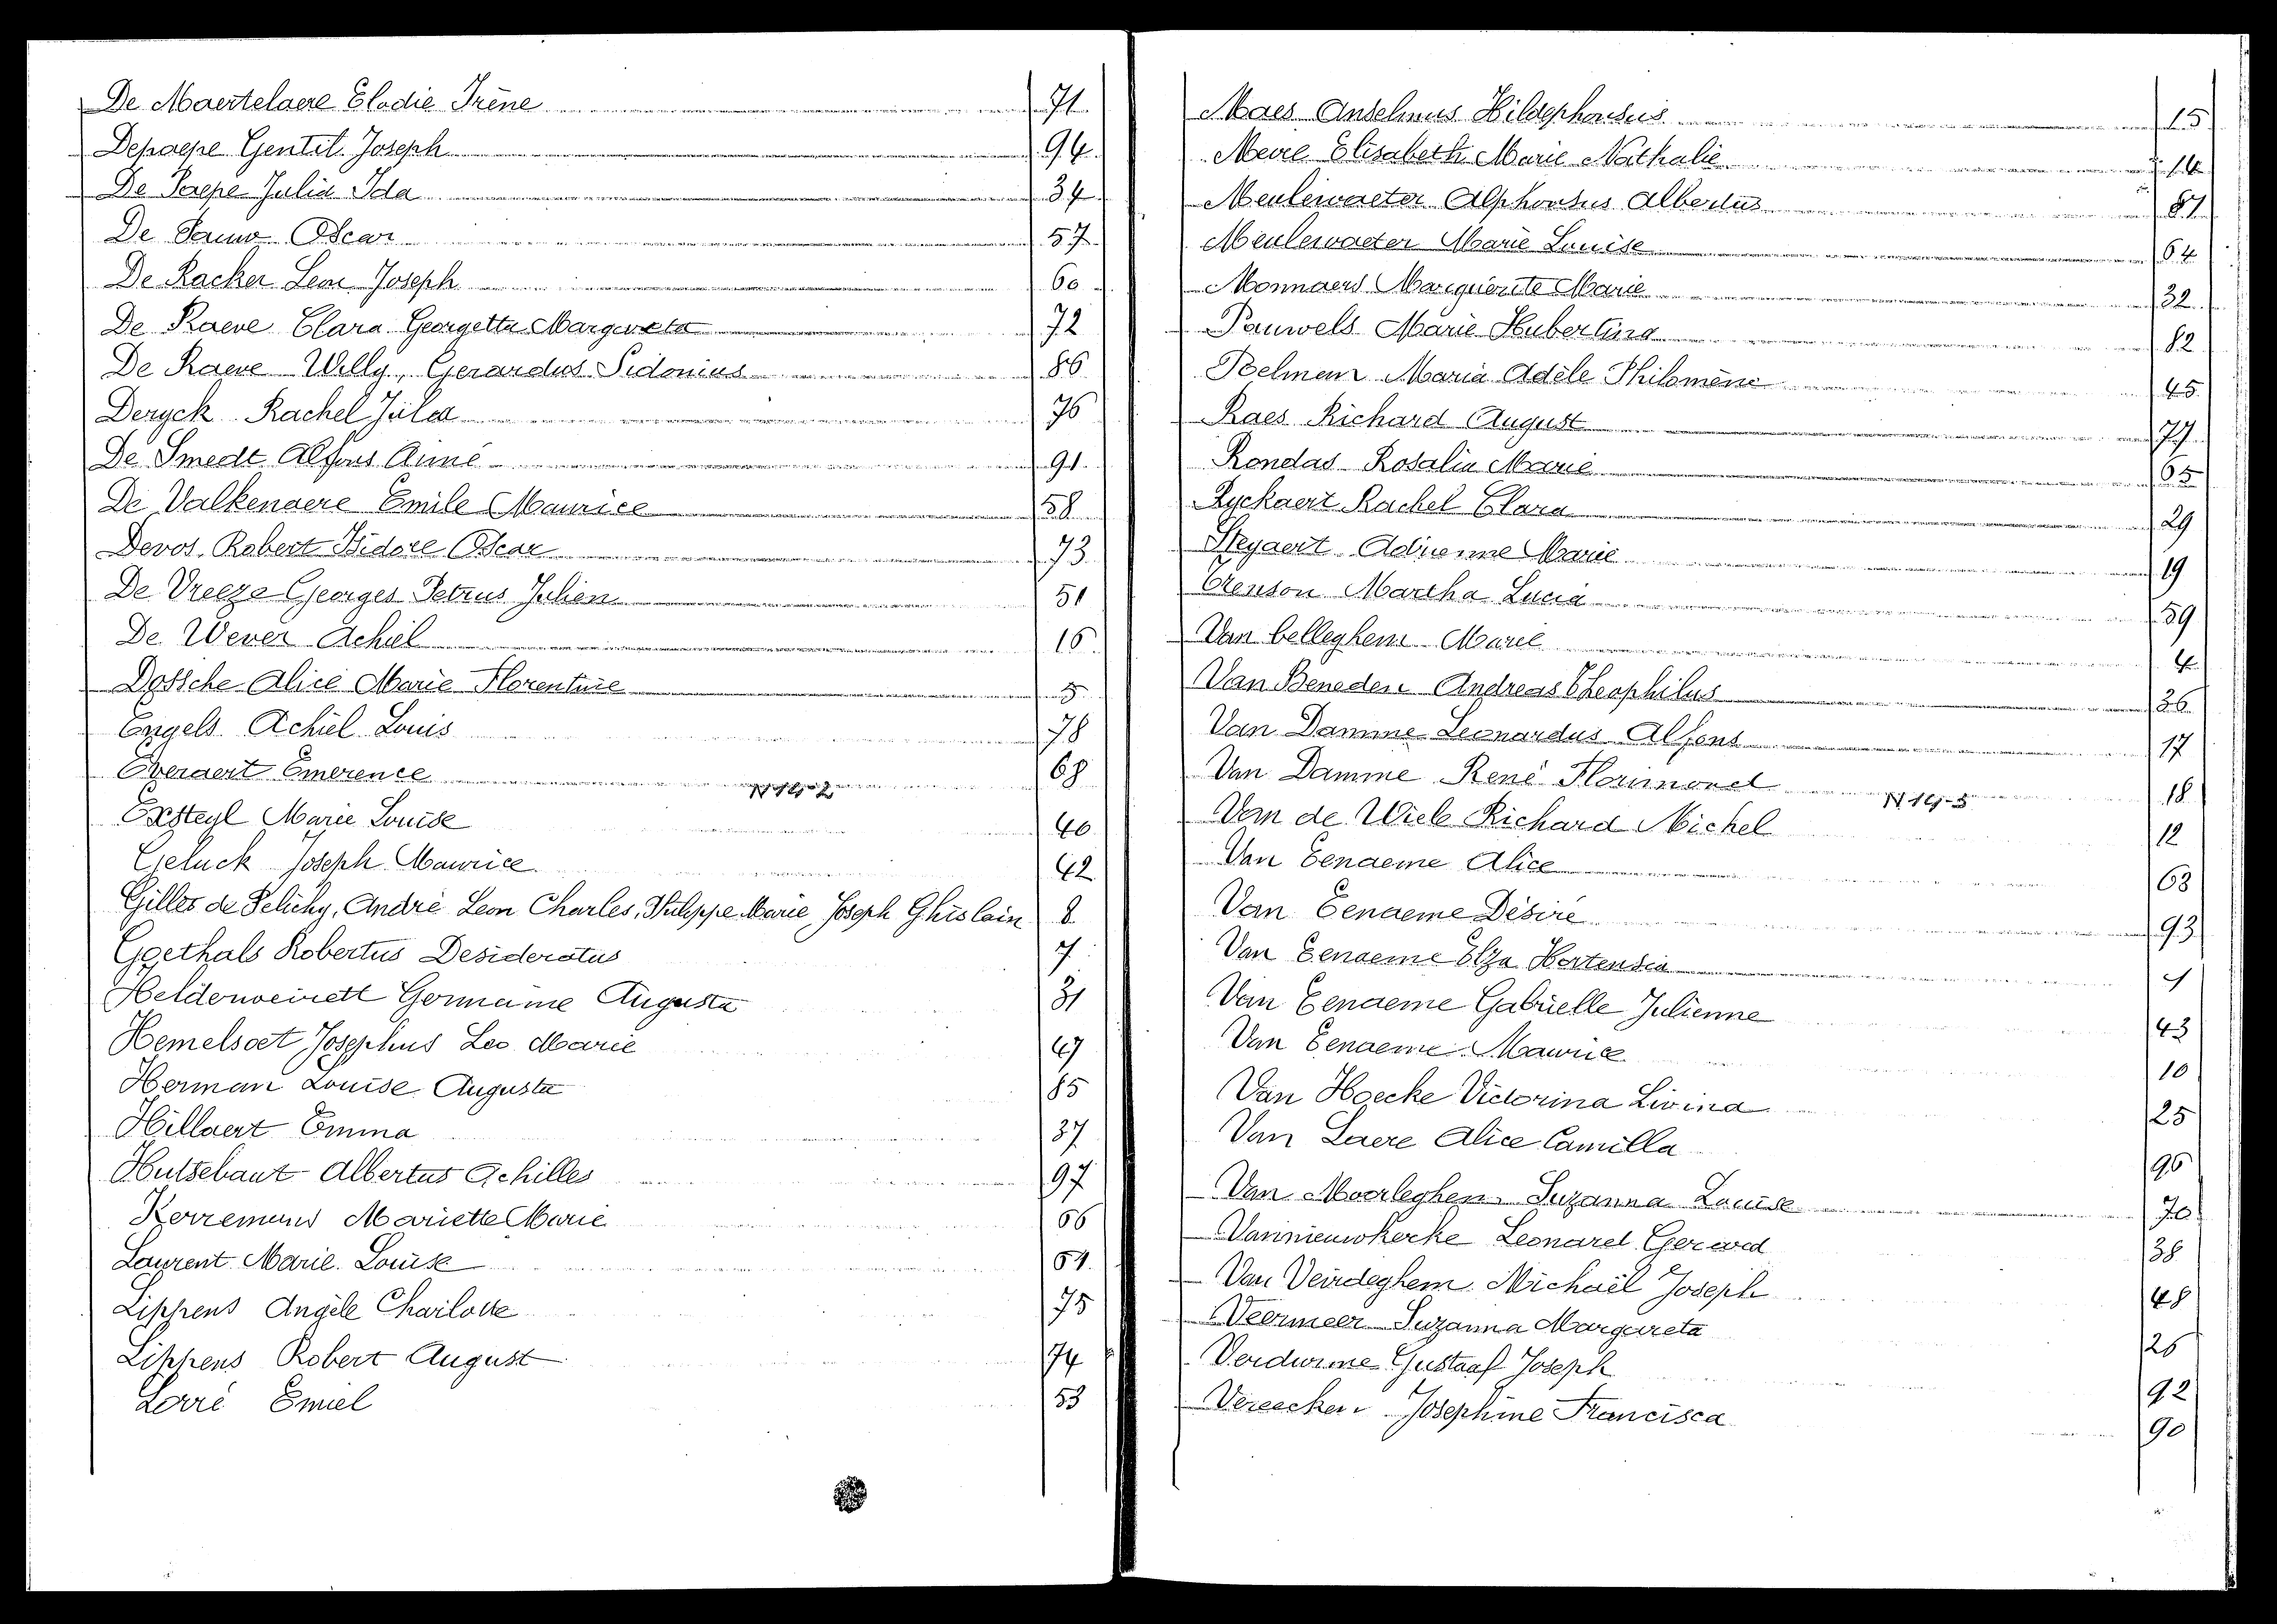 De Maertelaere Elodie Irène 71
Depaepe Gentil Joseph 94
De Paepe Julia Ida 34
De Pauw Oscar 57
De Racker Leon Joseph 60
De Raeve Clara Georgetta Margareta 72
De Raeve Willy, Gerardus Sidonius 86
Deryck Rachel Julia 76
De Smedt Alfons Aimé 91
De Valkenaere Emile Maurice 58
Devos Robert Isidore Oscar 73
De Vreeze Georges Petrus Julien 51
De Wever Achiel 16
Dossche Alice Marie Florentine 5
Engels Achiel Louis 78
Everaert Emerence 68
Exsteyl Marie Louise 40
Geluck Joseph Maurice 42
Gilles de Pelichy, André Leon Charles, Philippe Marie Joseph Ghislain 8
Goethals Robertus Desideratus 7
Helderweirdt Germaine Augusta 31
Hemelsoet Josephus Leo Marie 47
Herman Louise Augusta 85
Hillaert Emma 37
Hutsebaut Albertus Achilles 97
Kerremans Mariette Marie 66
Laurent Marie Louise 54
Lippens Angèle Charlotte 75
Lippens Robert August 74
Lorré Emiel 53
Maes Anselmus Hildephonsus 15
Meire Elisabeth Marie Nathalie 14
Meulewaeter Alphonsus Albertus 87
Meulewaeter Marie Louise 64
Monnaers Marguerite Marie 32
Pauwels Marie Hubertina 82
Poelman Maria Adèle Philomène 45
Raes Richard August 77
Rondas Rosalia Marie 65
Ryckaert Rachel Clara 29
Steyaert Adrienne Marie 19
Stenson Martha Lucia 59
Van belleghem Marie 4
Van Beneden Andreas Theophilus 36
Van Damme Leonardus Alfons 17
Van Damme René Florimond 18
Van de Wiele Richard Michel 12
Van Eenaeme Alice 63
Van Eenaeme Désiré 93
Van Eenaeme Elza Hortensia
Van Eenaeme Gabrielle Julienne 43
Van Eenaeme Maurice 10
Van Hoecke Victorina Livina 25
Van Laere Alice Camilla 96
Van Moerleghem Suzanna Louise 70
Vannieuwkerke Leonard Gerard 38
Van Veirdeghem Michaël Joseph 48
Veermeer Suzanna Margareta 26
Verdurme Gustaaf Joseph 92
Vereecken Josephine Francisca 90